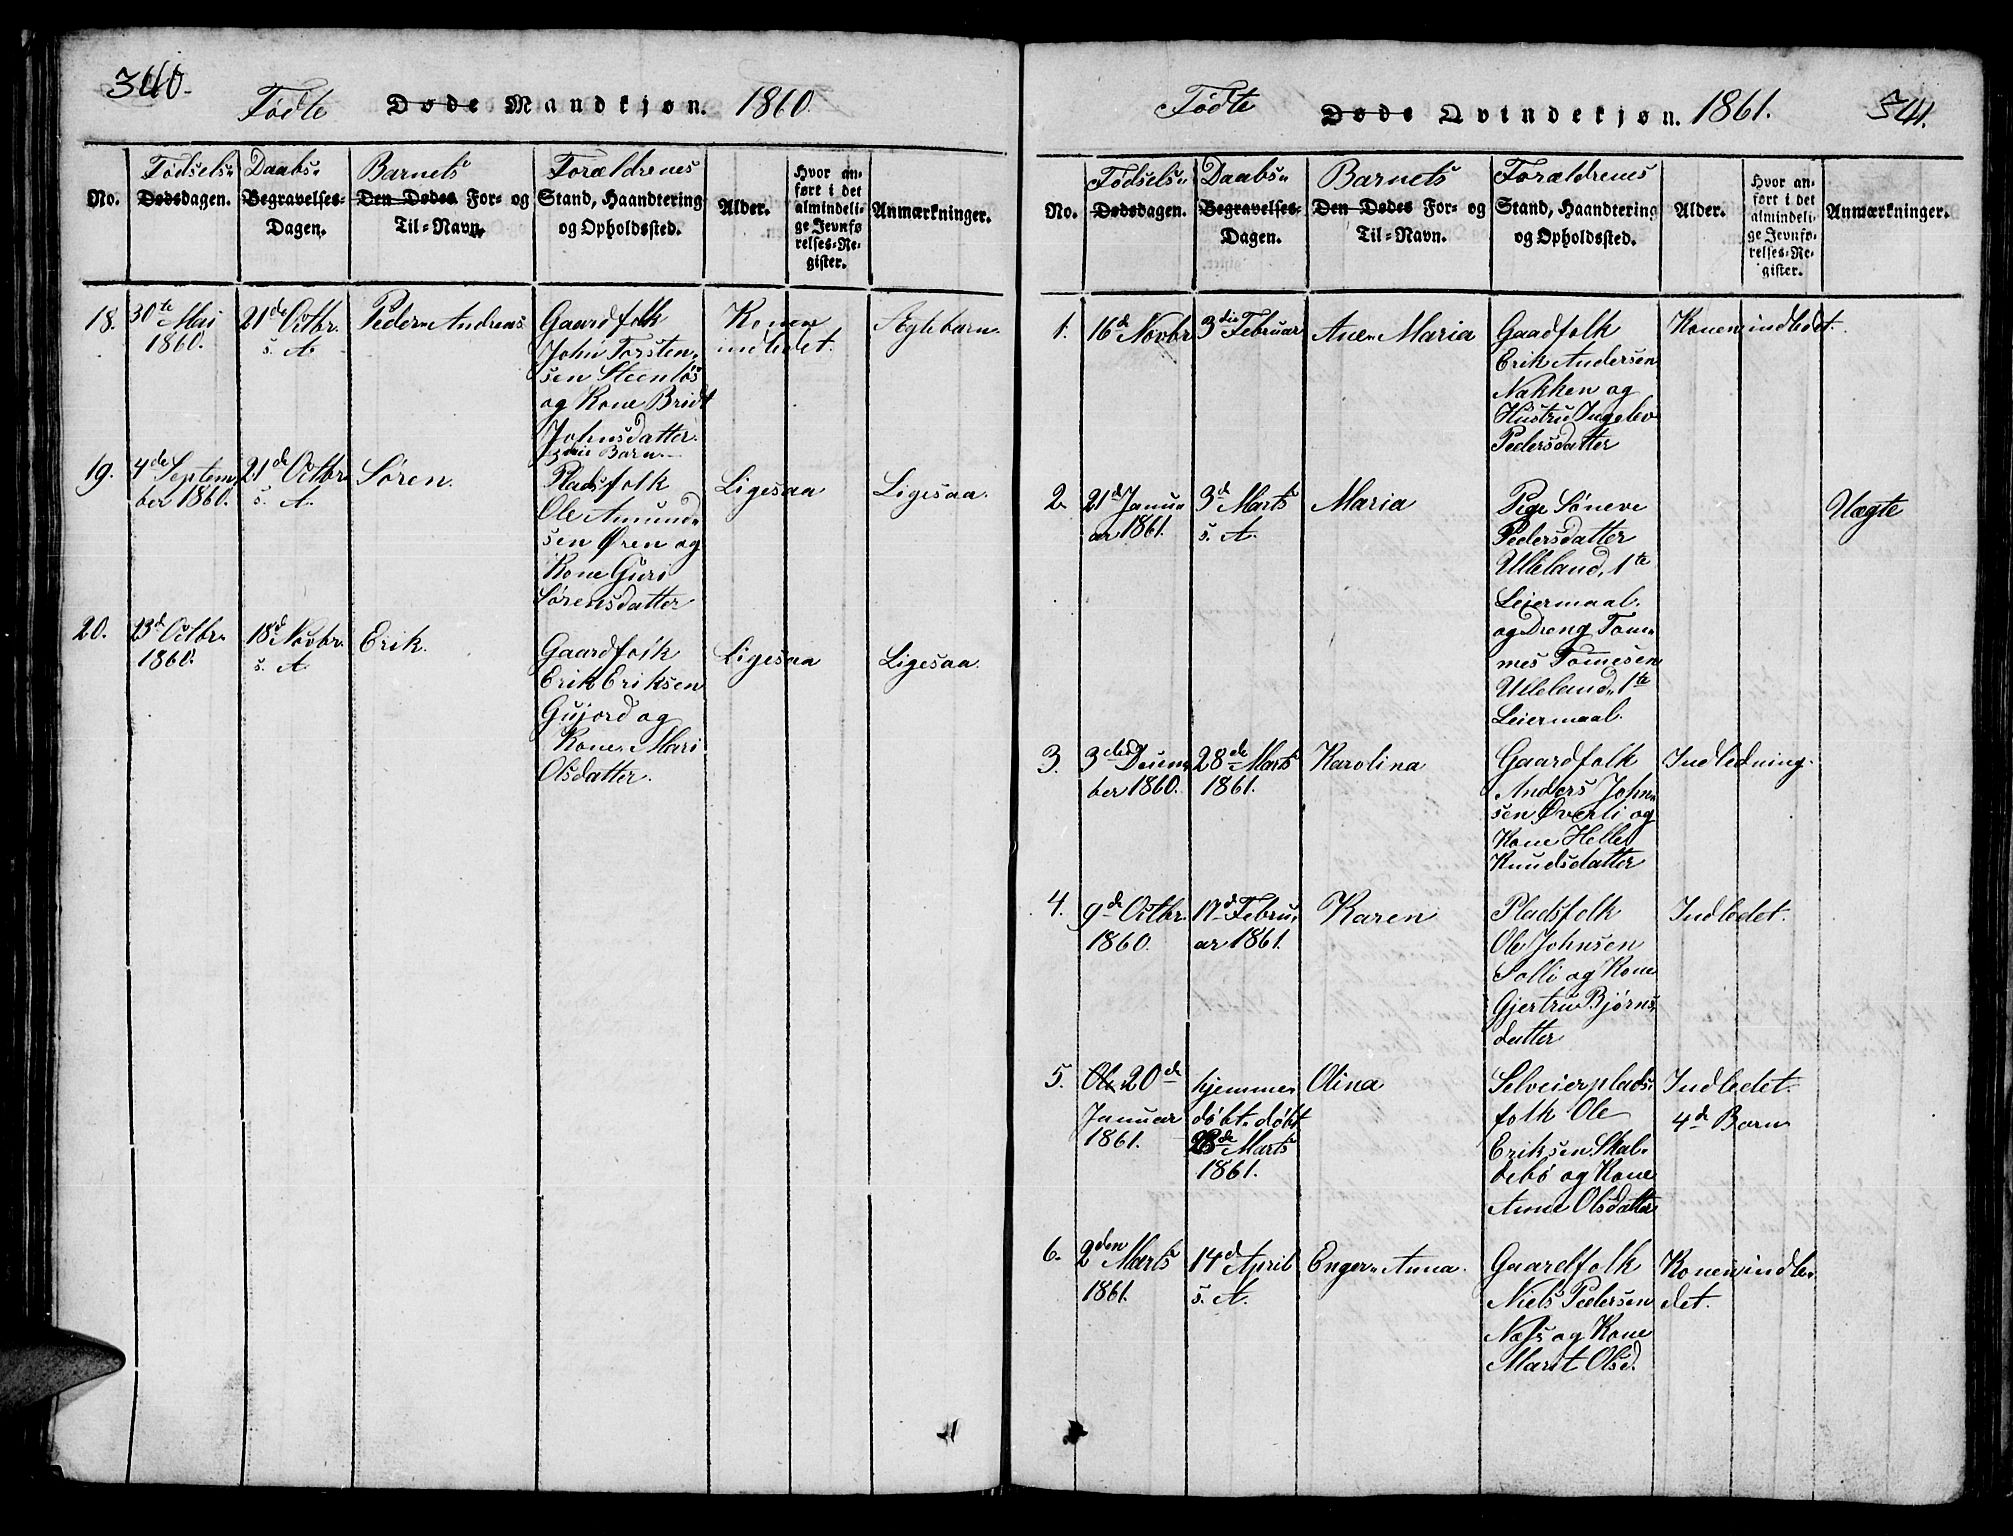 340.
Fødte Døde Mandkjøn. 1860.
No.
Fødselsdagen. Dødsdagen.
Daabs- Begravelses-Dagen.
Barnets Den Dødes For- og Til-Navn.
Forældrenes Stand, Haandtering og Opholdssted.
Alder.
Hvor anført i det almindelige Jevnførelses-Register.
Anmærkninger.
18.
30te Mai
1860.
21de Octbr.
s. A.
Peder Andreas
Gaardfolk
John Torsten-
sen Steenløs
og Kone Bridt
Johnsdatter.
3die Barn.
Konen
indledet.
Ægtebarn.
19.
4de Septem-
ber 1860.
21de Octbr.
s. A.
Søren.
Pladsfolk
Ole Amund-
sen Øren og
Kone Guri
Sørensdatter
Ligesaa
Ligesaa.
20.
23d Octbr.
1860.
18d Novbr.
s. A.
Erik.
Gaardfolk
Erik Eriksen
Gujord og
Kone Mari
Olsdatter.
Ligesaa
Ligesaa.
Fødte Døde Qvindekjøn. 1861.
341.
No.
Fødsels- Dødsdagen.
Daabs- Begravelses-Dagen.
Barnets Den Dødes For- og Til-Navn.
Forældrenes Stand, Haandtering og Opholdssted.
Alder.
Hvor anført i det almindelige Jevnførelses-Register.
Anmærkninger.
1.
16d Novbr
3die Februar
Ane Maria
Gaadfolk
Erik Andersen
Nakken og
Hustru Ingelev
Pedersdatter
Konen indledt.
2.
21d Janu-
ar 1861.
3d Marts
s. A.
Maria
Pige Søneve
Pedersdatter
Ulleland, 1te
Leiermaal.
og Dreng Tom-
mes Tomesen
Ulleland, 1te
Leiermaal.
Uægte
3.
3den Decem-
ber 1860.
28de Marts
1861.
Karolina
Gaardfolk
Anders John-
sen Øverli og
Kone Helle
Knudsdatter
Indledning.
4.
9de Octbr.
1860.
17d Febru-
ar 1861.
Karen
Pladsfolk
Ole Johnsen
Solli og Kone
Gjertru Bjørns-
datter
Indledet.
5.
20de
Januar
1861.
hjemme-
døbt. døbt
28de Marts
1861.
Olina
Selveierplads-
folk Ole
Eriksen Skal-
lebø og Kone
Anne Olsdatter
Indledet.
4d Barn
6.
2den Marts
1861.
14d April
s. A.
Enger Anna.
Gaardfolk
Niels Pedersen
Næss og Kone
Marit Olsd.
Konen indle-
det.